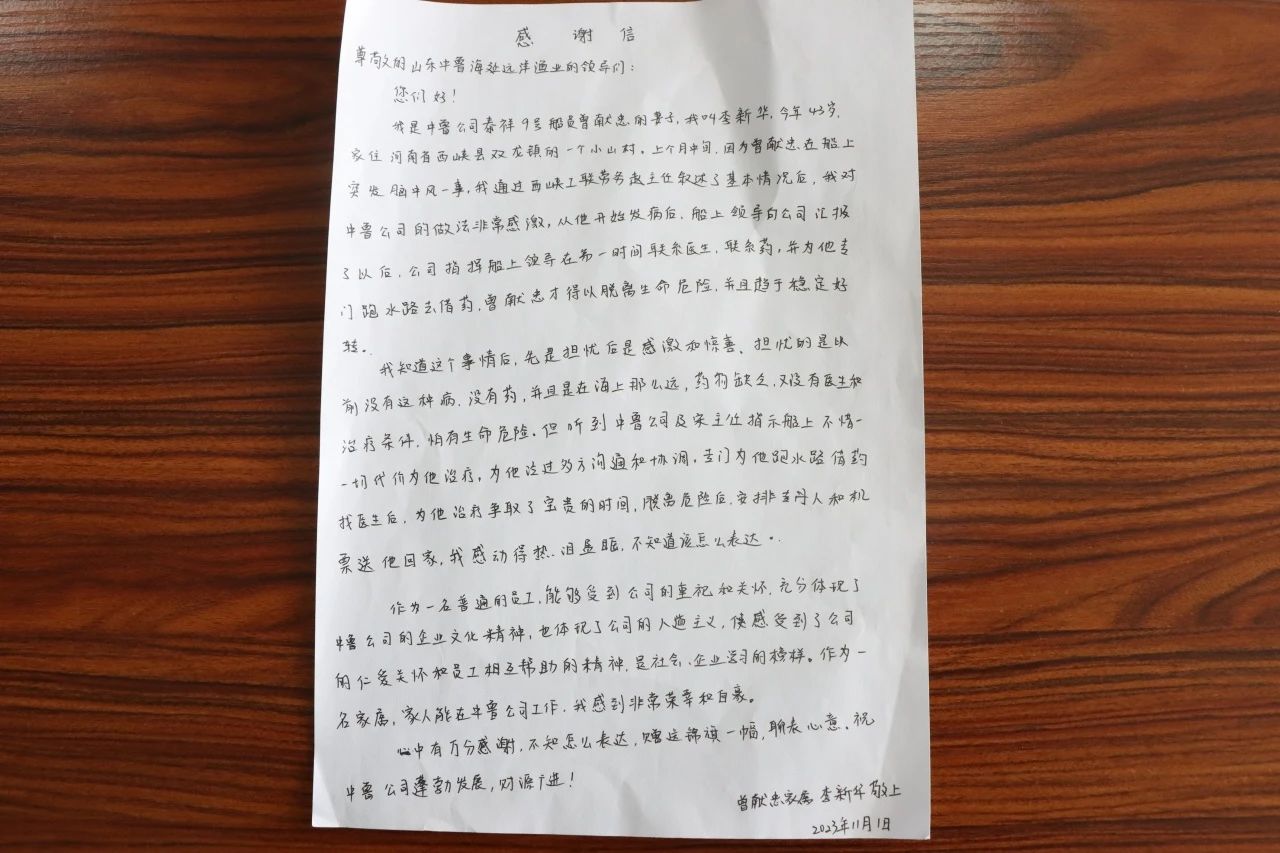 感谢信
尊敬的山东中鲁海延远洋渔业的领导们：
您们好！
我是中鲁公司泰祥9号船员曾献忠的妻子，我叫李新华，今年43岁，
家住河南省西峡县双龙镇的一个小山村。上个月中间，因为曾献忠在船上
突发脑中风一事，我通过西峡工联劳务赵主任叙述了基本情况后，我对
中鲁公司的做法非常感激，从他开始发病后，船上领导向公司汇报
了以后，公司指挥船上领导在第一时间联系医生，联系药，并为他专
门跑水路去借药，曾献忠才得以脱离生命危险，并且趋于稳定好
转。
我知道这个事情后，先是担忧后是感激和惊喜、担忧的是以
前没有这种病，没有药，并且是在海上那么远，药物缺乏，又没有医生和
治疗条件，怕有生命危险。但听到中鲁公司及宋主任指示船上不惜一
一切代价为他治疗，为他经过多方沟通和协调，专门为他跑水路借药
找医生后，为他治疗争取了宝贵的时间，脱离危险后，安排专人和机
票送他回家，我感动得热泪盈眶，不知道该怎么表达。
作为一名普通的员工，能够受到公司的重视和关怀，充分体现了
中鲁公司的企业文化精神，也体现了公司的人道主义，使感受到了公司
的仁爱关怀和员工相互帮助的精神，是社会、企业学习的榜样。作为一
名家属，家人能在中鲁公司工作，我感到非常荣幸和自豪。
心中有万分感谢，不知怎么表达，赠送锦旗一幅，聊表心意。祝
中鲁公司蓬勃发展，财源广进！
曾献忠家属 李新华 敬上
2023年11月1日